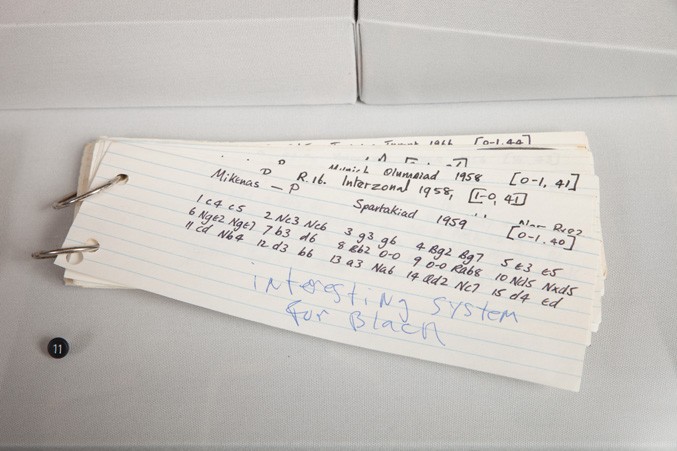 1966 [0-1, 44]
Munich Olympiad 1958 [0-1, 41]
D R.16. Interzonal 1958, [1-0, 41]
Mikenas — P Spartakiad 1959 [0-1, 40]
1 c4 c5 2 Nc3 Nc6 3 g3 g6 4 Bg2 Bg7 5 e3 e5
6 Nge2 Nge7 7 b3 d6 8 Bb2 0-0 9 0-0 Rab8 10 Nd5 Nxd5
11 cd Nb4 12 d3 b6 13 a3 Na6 14 Qd2 Nc7 15 d4 ed
interesting system
for Black
11